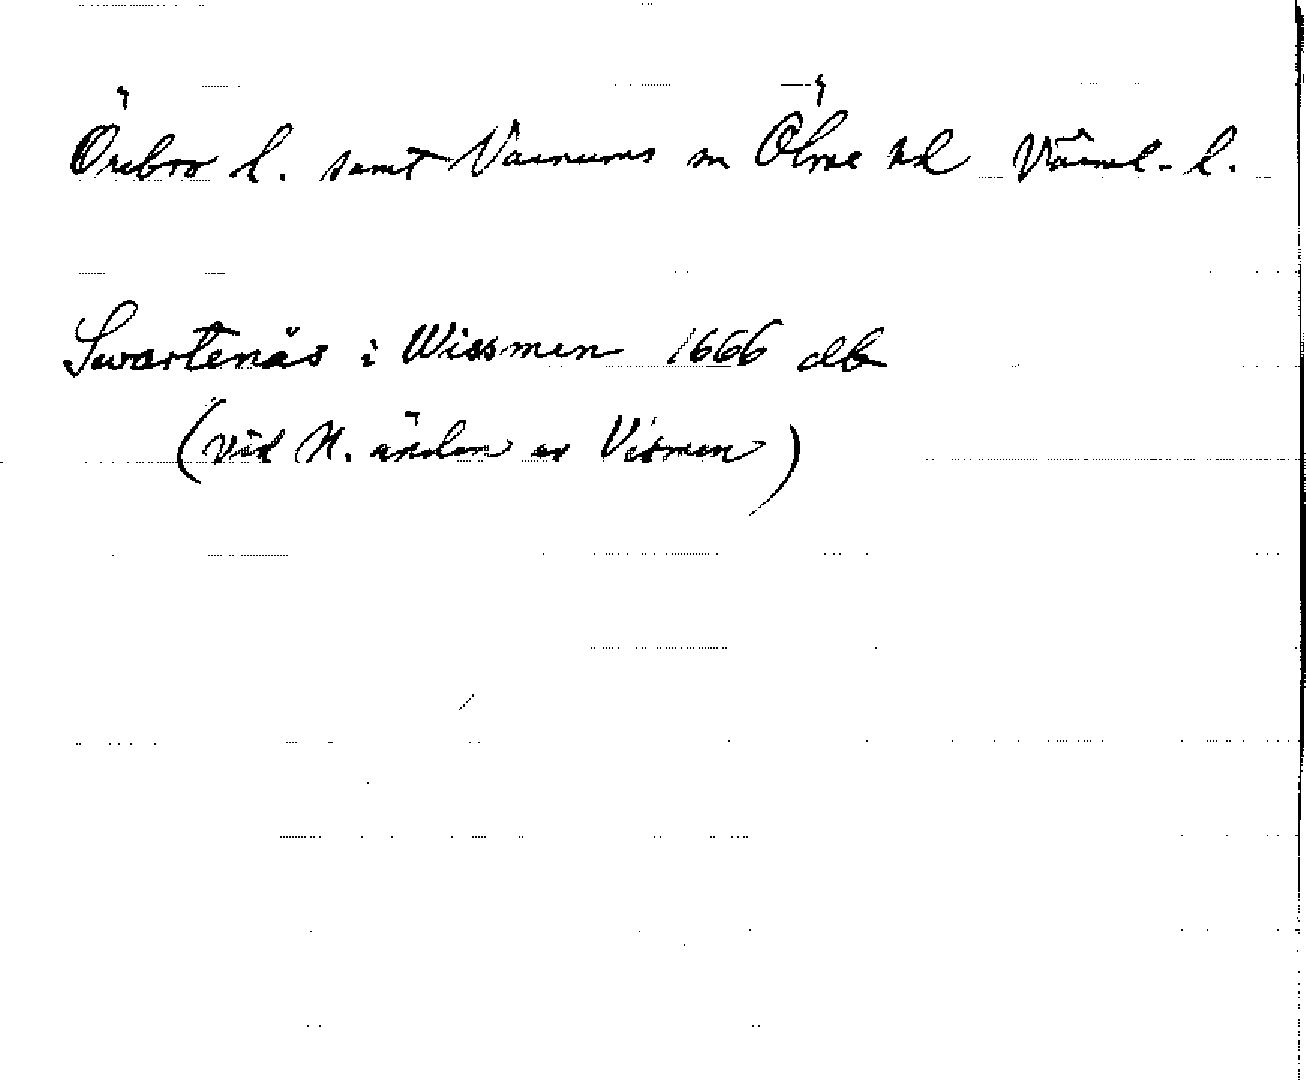 Örebro l. samt Varnums sn Ölme hd Värml. l.
Swartenäs i Wissmen 1666 db
(vid N. änden av Vismen)